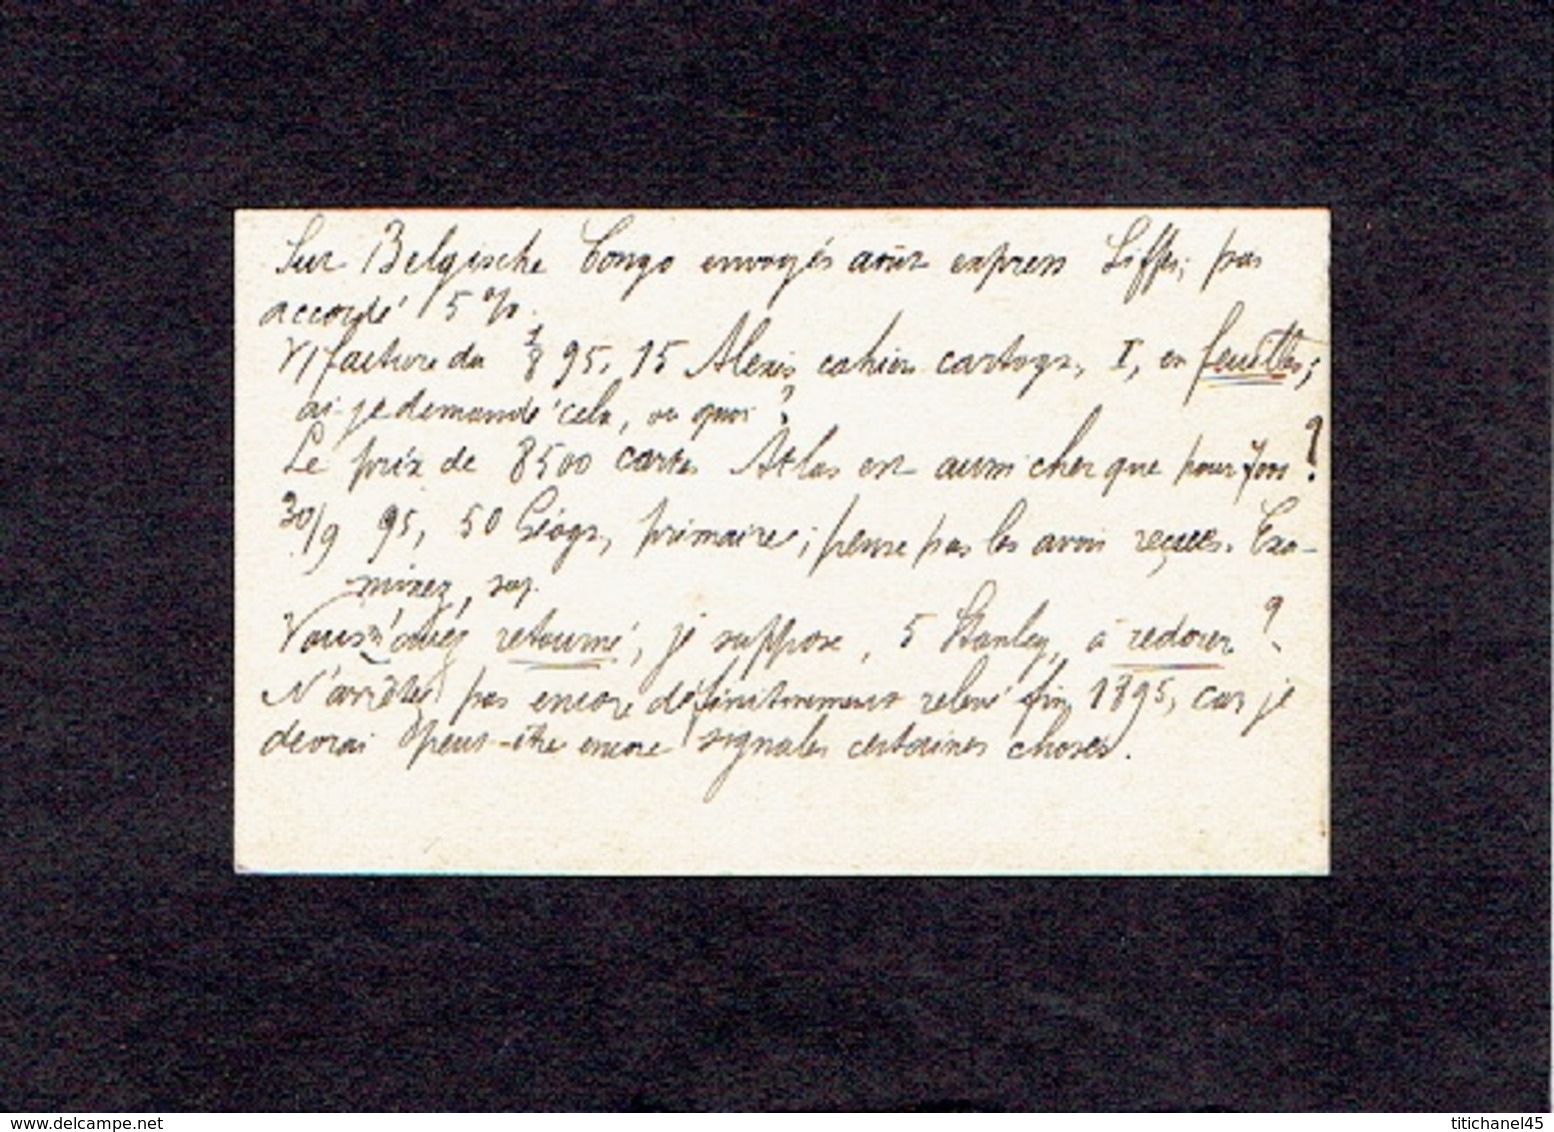 Sur Belgische Congo envoyés août express Siffer, pas
accordé 5 %.
V/ facture du 1/8 95, 15 Alexis cahier cartogr, I, en feuilles;
ai-je demandé cela, ou quoi?
Le prix de 8500 cartes Atlas est aussi cher que pour 7000?
30/9 95, 50 Géogr, primaire; pense pas les avoir reçues. Exa-
minez, svp.
Vous m'aviez retourné, je suppose, 5 Stanley, à redorer?
N'arrêtez pas encore définitivement relevé fin 1895, car je
devrai peut-être encore signaler certaines choses.
www.delcampe.net
titichanel45